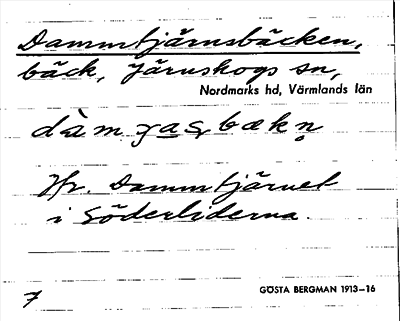 Dammtjärnsbäcken,
bäck, Järnskogs sn,
Nordmarks hd, Värmlands län
Hr. Dammtjärnet
i Söderliderna.
7
GÖSTA BERGMAN 1913–16